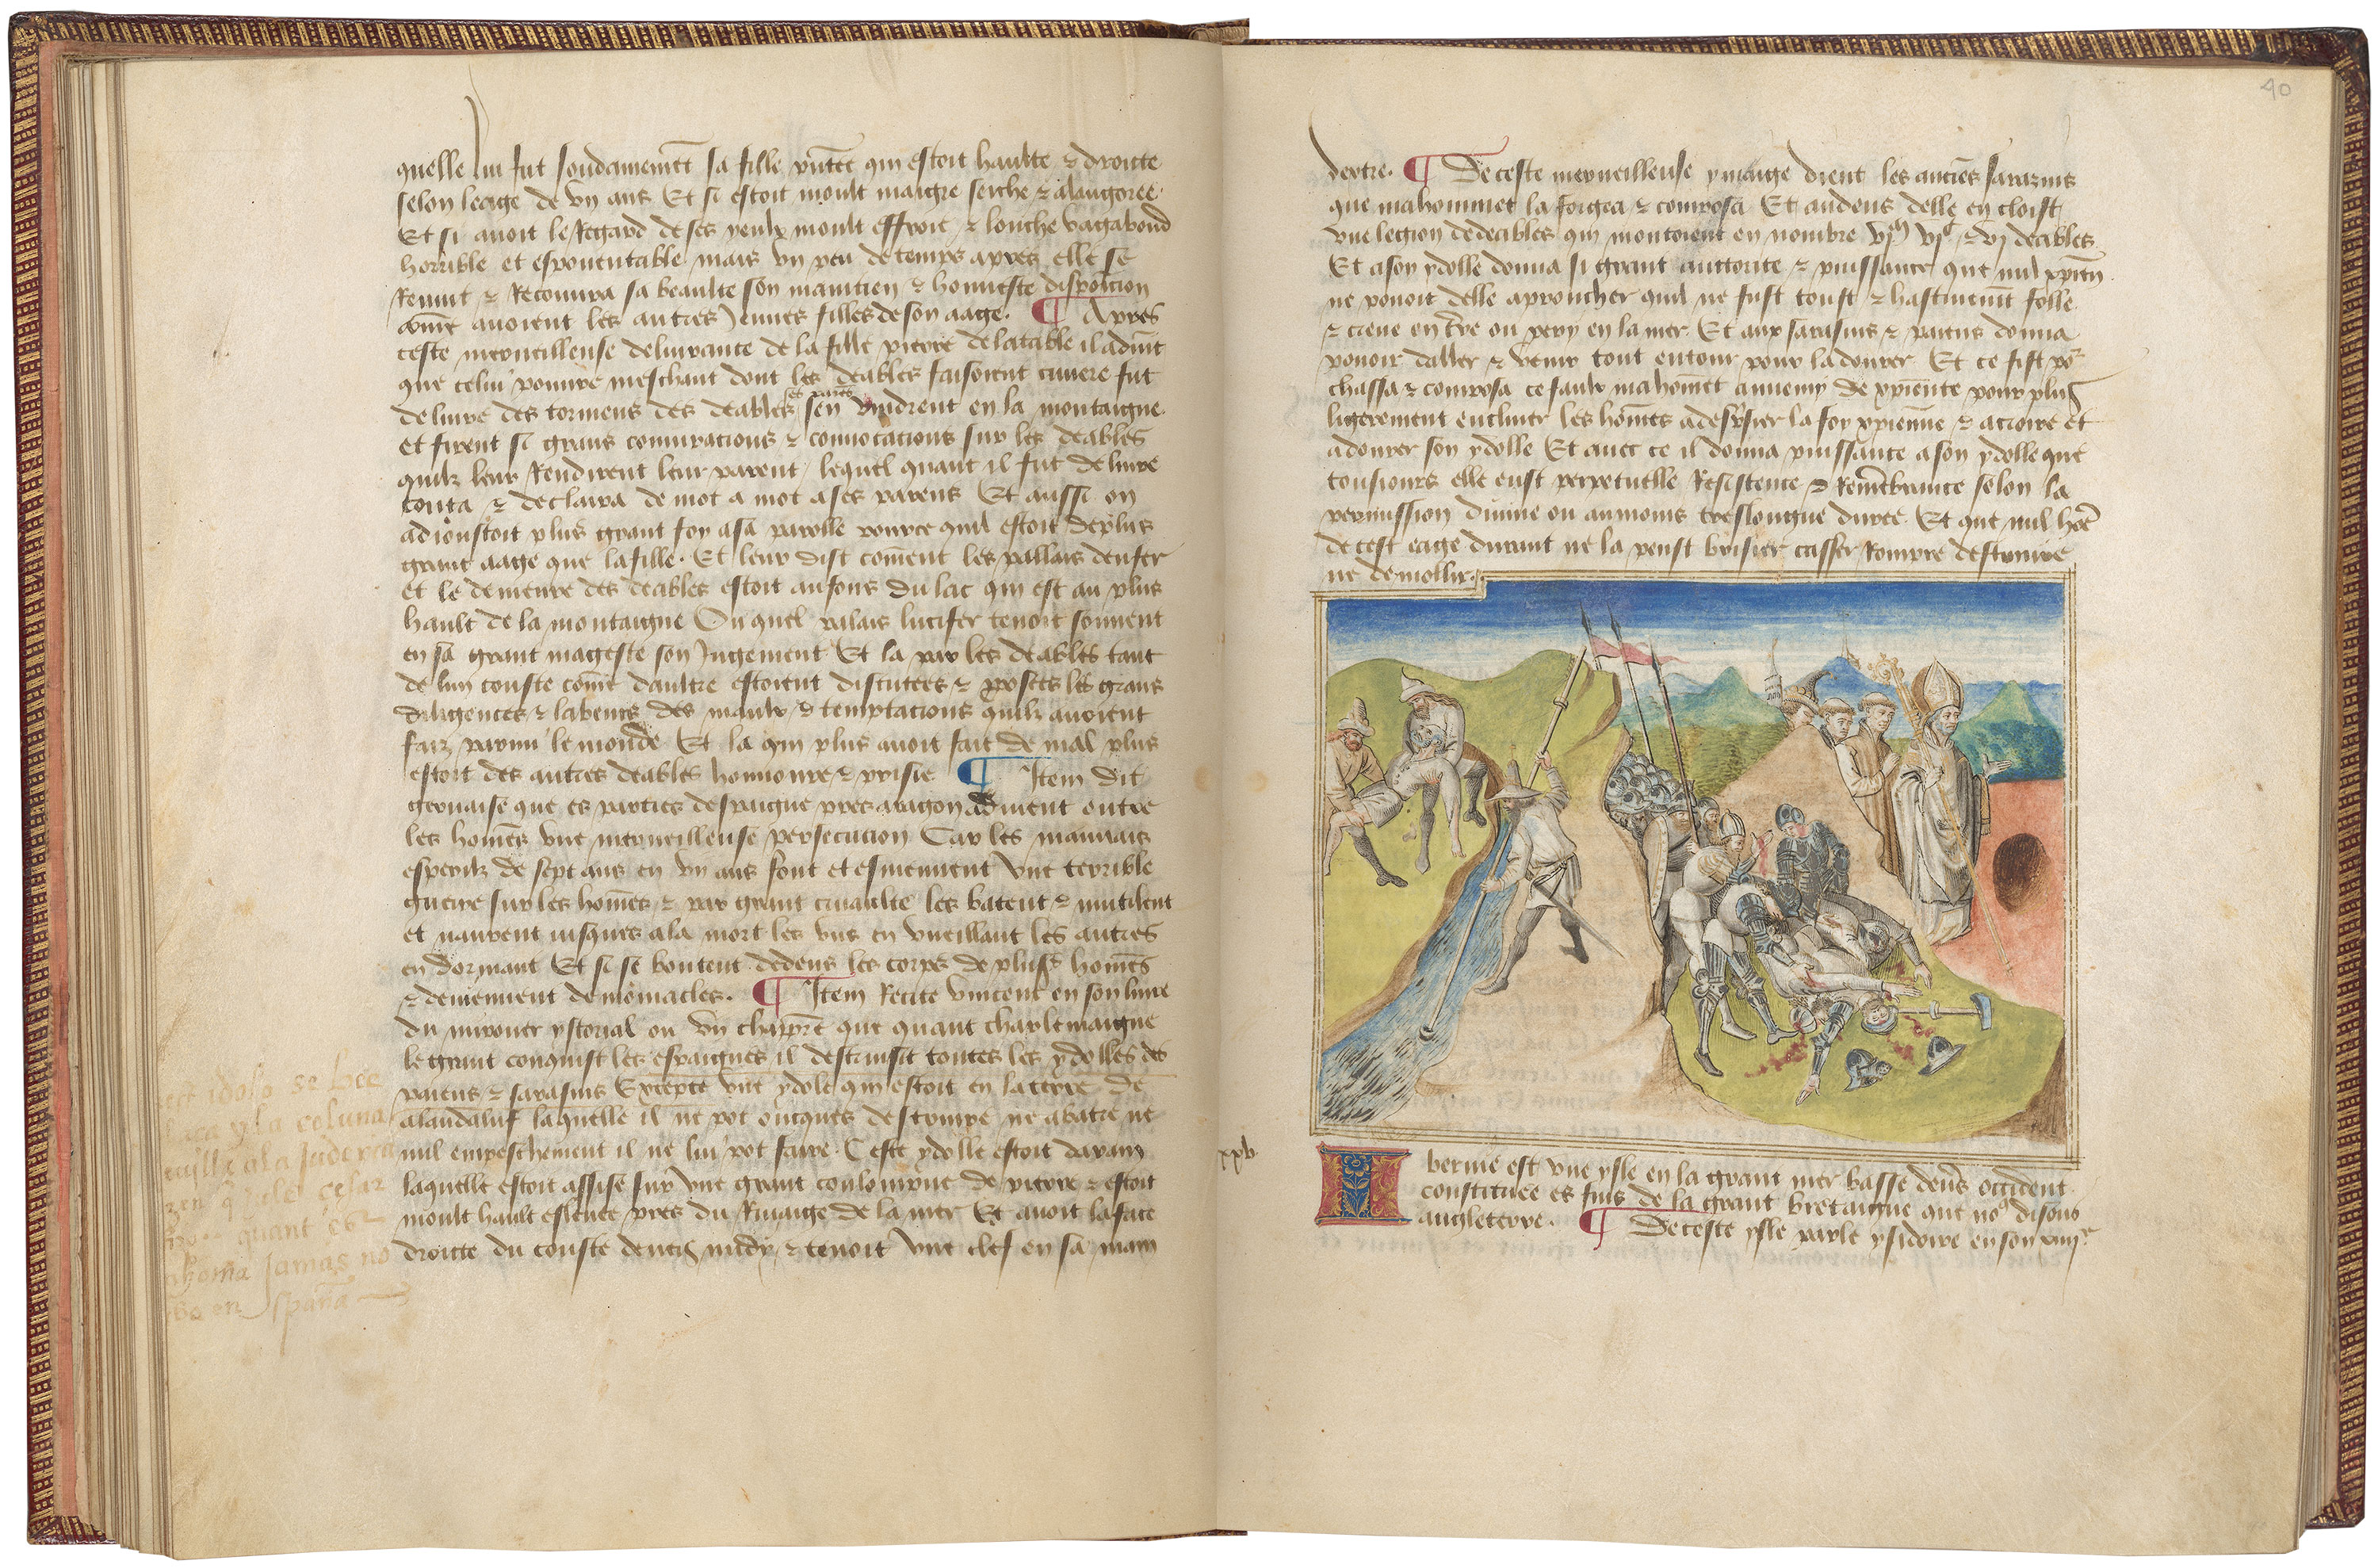 quelle lui fut soudainemēt sa fille rūtee qui estoit haulte ⁊ droitte
selon leaige de vij ans Et si estoit moult maigre seiche ⁊ alangoree
Et si auoit le Regard de ses yeulx moult effroie ⁊ louche vagabond
horrible et espouentable mais vn peu de temps apres elle se
Reuint ⁊ Recouura sa beaulte son maintien ⁊ honneste disposicion
cōme auoient les autres Jeunes filles de son aage. ¶ Apres
ceste merueilleuse deliurance de la fille pierre de latable il aduīt
que celui poure meschant dont les deables faisoient cuuere fut
deliure des tormens des deables ses parēs sen vindrent en la montaigne
et firent si grans coniuracions ⁊ conuocacions sur les deables
quilz leur Rendirent leur parent lequel quant il fut deliure
conta ⁊ declaira de mot a mot a ses parens Et aussi on
adioustoit plus grant foy a sa parolle pource quil estoit de plus
grant aage que la fille. Et leur dist cōment les pallais denfer
et le demeure des deables estoit au fons du lac qui est au plus
hault de la montaigne Ou quel palais lucifer tenoit souuent
en sa grant mageste son Jugement Et la par les deables tant
de lun couste cōme daultre estoient discutees ⁊ posees les grans
diligences ⁊ labeurs des maulx ⁊ temptacions quilz auoient
faiz parmi le monde Et la qui plus auoit fait de mal plus
estoit des autres deables honnoure ⁊ prisie ¶ Item dit
geruaise que es parties despaigne pres aragon aduient entre
les homēs vne merueilleuse persecucion Car les mauuais
esperilz de sept ans en vij ans font et esmeuuent vne terrible
guerre sur les homēs ⁊ par grant cruaulte les batent ⁊ mutilent
et naurent iusques a la mort les vns en vueillant les autres
en dormant Et si se boutent dedens les corps de plusrs homēs
⁊ deuiennent demoniacles. ¶ Item Recite vincent en son liure
du mirouer ystorial ou vij chapitre que quant charlemaigne
le grant conquist les espaignes il destruisit toutes les ydolles des
paiens ⁊ sarasins Excepte vne ydole qui estoit en la terre de
alandaluf laquelle il ne pot oncques destompre ne abatre ne
nul empeschement il ne lui pot faire. Ceste ydolle estoit darain
laquelle estoit assise sur vne grant coulompne de pierre ⁊ estoit
moult hault esleuee pres du Riuaige de la mer Et auoit la face
droitte du couste deuers midy ⁊ tenoit vne clef en sa main
idolo se
y la coluna
a la
cesar
quant es
jamas no
en españa
40
dextre. ¶ De ceste merueilleuse ymaige dient les anciēs sarazins
que mahommet la forgea ⁊ composa Et audens delle en cloist
vne legion de deables qui montoient en nombre vjm vjc ⁊ vj deables
Et a son ydolle donna si grant auttorite ⁊ puissance que nul xpien
ne pouoit delle aproucher quil ne fust toust ⁊ hastiuemt folle
⁊ creue en tr̄re ou pery en la mer. Et aux sarasins ⁊ paiens donna
pouoir daller ⁊ venir tout entour pour ladourer. Et ce fist ⁊ por
chassa ⁊ composa ce faulx mahomet annemy de xpiente pour plus
ligerement encliner les homēs a desprisier la foy xpienne ⁊ acroire et
adourer son ydolle Et auec ce il donna puissance a son ydolle que
tousiours elle eust perpetuelle Resistence ⁊ Remēbrance selon la
permission diuine ou aumoins treslongue duree. Et que nul hōe
de cest eage durant ne la peust brisier casser Rompre destruire
ne demollir.
xxv
Ibernie est vne ysle en la grant mer basse deūs occident
constituee es fins de la grant bretaigne que nos disons
angleterre. ¶ De ceste ysle parle ysidoire en son xiiije